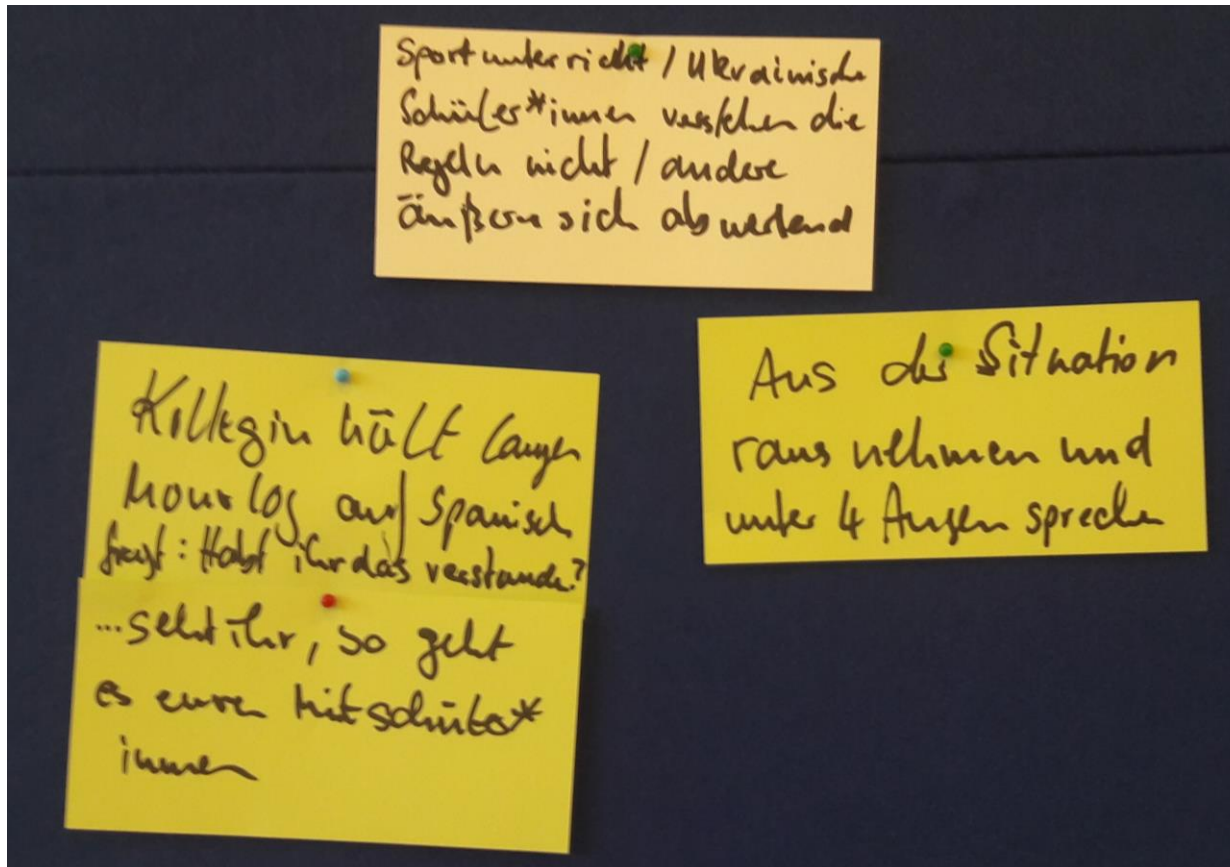 Sportunterricht / Ukrainische
Schüler*innen verstehen die
Regeln nicht / andere
äußern sich abwertend
Kollegin hält langen
Monolog auf Spanisch
fragt: Habt ihr das verstanden?
...seht ihr, so geht
es euren Mitschüler*
innen
Aus der Situation
raus nehmen und
unter 4 Augen sprechen